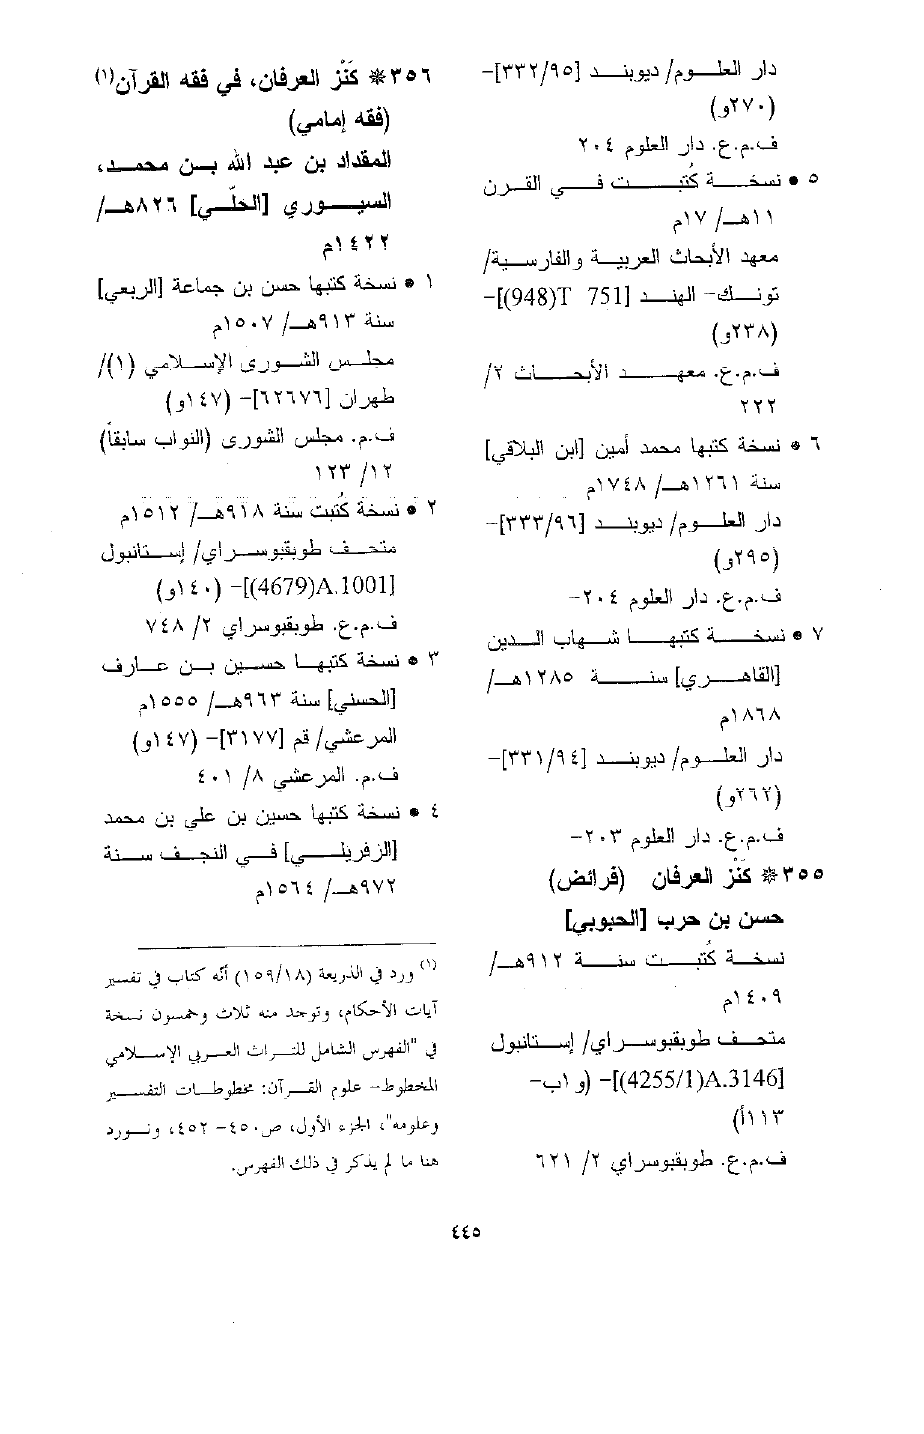 دار العلوم/ ديوبند [٣٣٢/٩٥]-
(٢٧٠و)
ف.م.ع. دار العلوم ٢٠٤
٥ • نسخة كُتبت في القرن
١١هـ/ ١٧م
معهد الأبحاث العربية والفارسية/
تونك- الهند [948)T 751)]-
(٢٣٨و)
ف.م.ع. معهد الأبحاث ٢/
٢٢٢
٦ • نسخة كتبها محمد أمين [ابن البلاقي]
سنة ١٢٦١هـ/ ١٧٤٨م
دار العلوم/ ديوبند [٣٣٣/٩٦]-
(٢٩٥و)
ف.م.ع. دار العلوم ٢٠٤-
٧ • نسخة كتبها شهاب الدين
[القاهري] سنة ١٢٨٥هـ/
١٨٦٨م
دار العلوم/ ديوبند [٣٣١/٩٤]-
(٢٦٢و)
ف.م.ع. دار العلوم ٢٠٣-
٣٥٥* كَنْز العرفان (فرائض)
حسن بن حرب [الحبوبي]
نسخة كُتبت سنة ٩١٢هـ/
١٤٠٩م
متحف طوبقبوسراي/ إستانبول
[4255/1)A.3146)]- (و١ب-
١١٣أ)
ف.م.ع. طوبقبوسراي ٢/ ٦٢١
٣٥٦* كَنْز العرفان، في فقه القرآن(١)
(فقه إمامي)
المقداد بن عبد الله بن محمد،
السيوري [الحلّي] ٨٢٦هـ/
١٤٢٢م
١ • نسخة كتبها حسن بن جماعة [الربعي]
سنة ٩١٣هـ/ ١٥٠٧م
مجلس الشورى الإسلامي (١)/
طهران [٦٢٦٧٦]- (١٤٧و)
ف.م. مجلس الشورى (النواب سابقاً)
١٢/ ١٢٣
٢ • نسخة كُتبت سنة ٩١٨هـ/ ١٥١٢م
متحف طوبقبوسراي/ إستانبول
[4679)A.1001)]- (١٤٠و)
ف.م.ع. طوبقبوسراي ٢/ ٧٤٨
٣ • نسخة كتبها حسين بن عارف
[الحسني] سنة ٩٦٣هـ/ ١٥٥٥م
المرعشي/ قم [٣١٧٧]- (١٤٧و)
ف.م. المرعشي ٨/ ٤٠١
٤ • نسخة كتبها حسين بن علي بن محمد
[الزفريلي] في النجف سنة
٩٧٢هـ/ ١٥٦٤م
(١) ورد في الذريعة (١٥٩/١٨) أنّه كتاب في تفسير
آيات الأحكام، وتوجد منه ثلاث وخمسون نسخة
في "الفهرس الشامل للتراث العربي الإسلامي
المخطوط- علوم القرآن: مخطوطات التفسير
وعلومه"، الجزء الأول، ص٤٥٠- ٤٥٢، ونورد
هنا ما لم يذكر في ذلك الفهرس.
٤٤٥